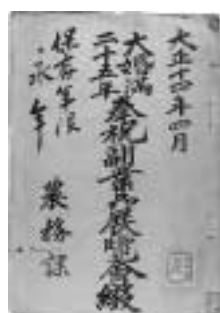 大正十四年四月
大婚満
二十五年
奉祝副業品展覧会綴
保存年限
永年
農務課